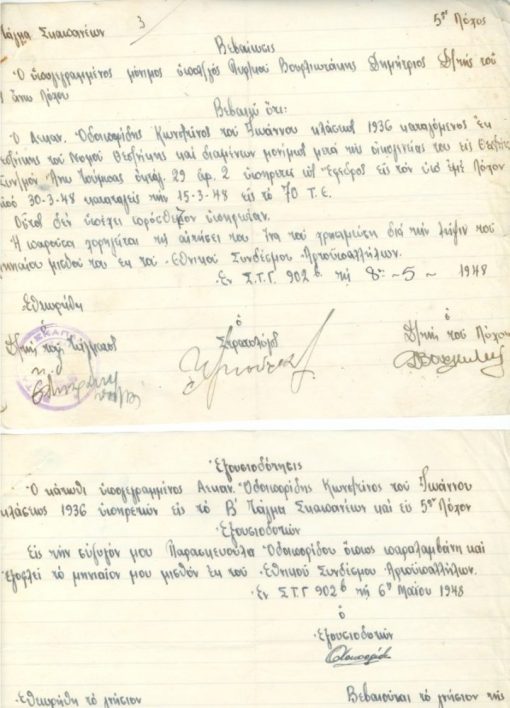 Τάγμα Σκαπανέων 3 5ος Λόχος
Βεβαίωσις
Ὁ ὑπογεγραμμένος μόνιμος Βουρλιωτάκης Δημήτριος Δ/τής τοῦ
ἄνω Λόχου
Βεβαιῶ ὅτι:
Ὁ Σκαπ. Ὁδοιπορίδης Κων/τῖνος τοῦ Ἰωάννου κλάσεως 1936 καταγόμενος ἐκ
Θεσ/νίκης τοῦ Νομοῦ Θεσ/νίκης καὶ διαμένων μονίμως μετὰ τῆς οἰκογενείας του εἰς Θεσ/νίκην
Ἄνω Τούμπας ὀκταγ. 29 ἀρ. 2 ὑπηρετεῖ ὡς Ἔφεδρος εἰς τὸν ὑπ' ἐμὲ Λόχον
ἀπὸ 30-3-48 καταταγεὶς τὴν 15-3-48 εἰς τὸ 70 Τ.Ε.
Οὗτος δὲν ὑπέχει πρόσθετον ὑπηρεσίαν.
Ἡ παροῦσα χορηγεῖται τῇ αἰτήσει του ἵνα τοῦ χρησιμεύσῃ διὰ τὴν λῆψιν τοῦ
μηνιαίου μισθοῦ του ἐκ τοῦ Ἐθνικοῦ Συνδέσμου Ἀρτοϋπαλλήλων.
Ἐν Σ.Τ.Γ. 902β τῇ 8 - 5 - 1948
Ἐθεωρήθη
ὁ ὁ ὁ
Δ/τής τοῦ Τάγματος Στρατολόγος Δ/τής τοῦ Λόχου
Ἐξουσιοδότησις
Ὁ κάτωθι ὑπογεγραμμένος Σκαπ. Ὁδοιπορίδης Κων/τῖνος τοῦ Ἰωάννου
κλάσεως 1936 ὑπηρετῶν εἰς τὸ Β Τάγμα Σκαπανέων καὶ εἰς 5ον Λόχον
Ἐξουσιοδοτῶν
Εἰς τὴν σύζυγόν μου Παρασκευούλα Ὁδοιπορίδου ὅπως παραλαμβάνῃ καὶ
ἐξοφλεῖ τὸ μηνιαῖον μου μισθὸν ἐκ τοῦ Ἐθνικοῦ Συνδέσμου Ἀρτοϋπαλλήλων.
Ἐν Σ.Τ.Γ 902β τῇ 6ῃ Μαΐου 1948
ὁ
Ἐξουσιοδοτῶν
Ἐθεωρήθη τὸ γνήσιον Βεβαιοῦται τὸ γνήσιον τῆς